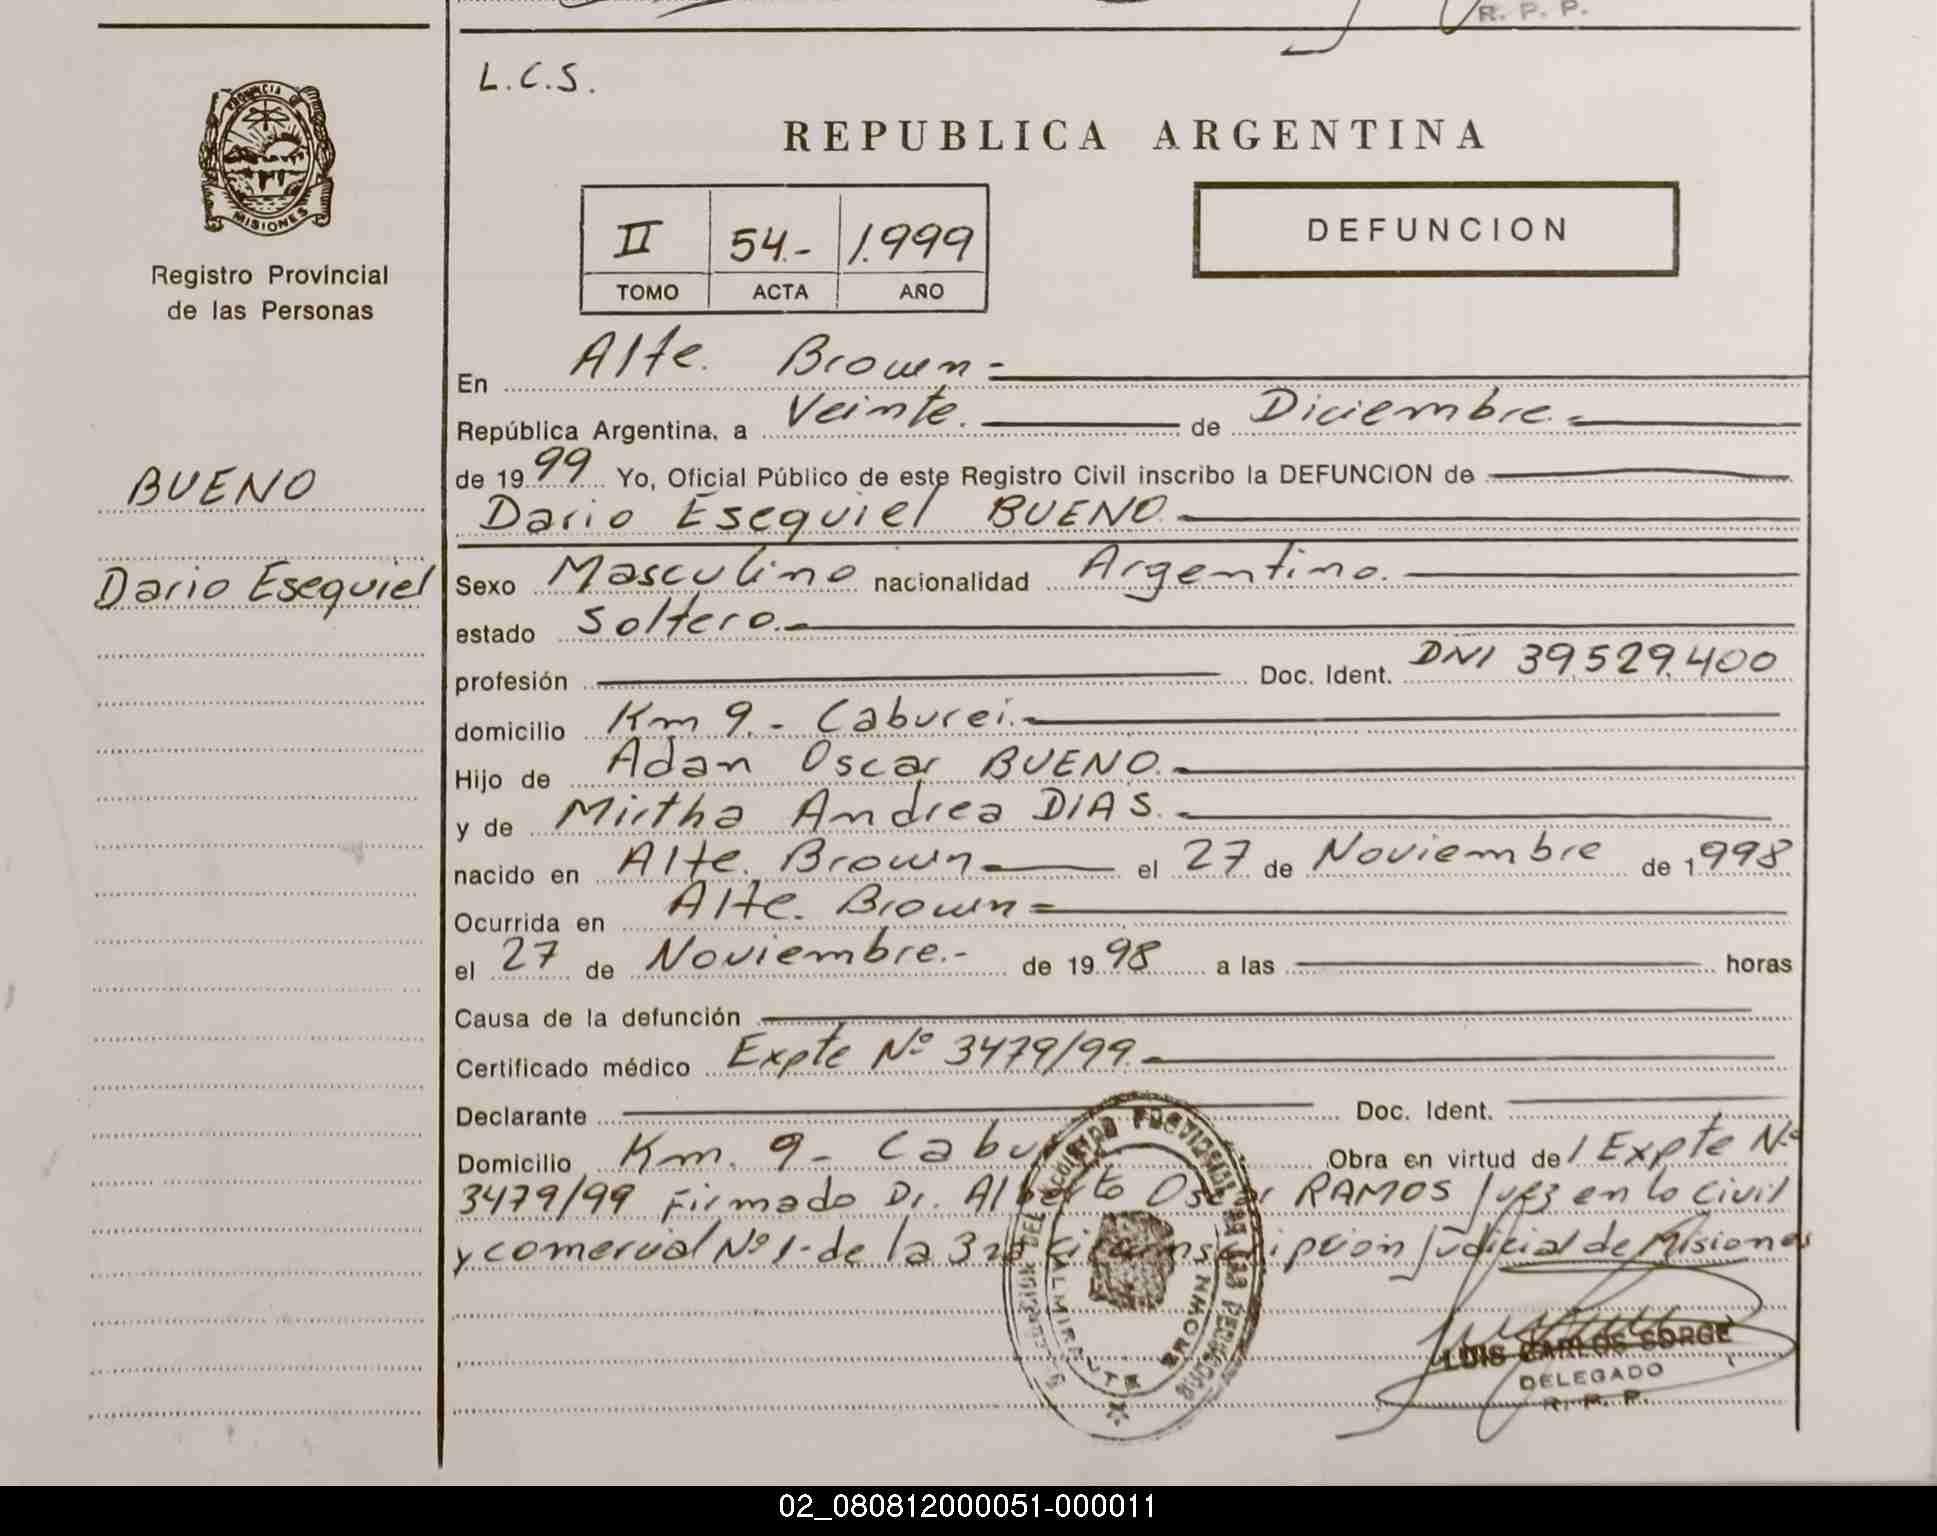 R. P. P.
L.C.S.
PROVINCIA
MISIONES
Registro Provincial
de las Personas
REPUBLICA ARGENTINA
II 54.- 1.999
TOMO ACTA AÑO
DEFUNCION
En Alte. Brown=
República Argentina, a Veinte. de Diciembre.=
de 1999 Yo, Oficial Público de este Registro Civil inscribo la DEFUNCION de
BUENO
Dario Esequiel BUENO.
Dario Esequiel
Sexo Masculino nacionalidad Argentino.
estado Soltero.-
profesión Doc. Ident. DNI 39.529.400
domicilio Km 9.- Caburei.-
Hijo de Adan Oscar BUENO.-
y de Mirtha Andrea DIAS.-
nacido en Alte. Brown el 27 de Noviembre de 1998
Ocurrida en Alte. Brown=
el 27 de Noviembre.- de 1998 a las horas
Causa de la defunción
Certificado médico Expte Nº 3479/99.-
Declarante Doc. Ident.
Domicilio Km. 9- Cabu Obra en virtud del Expte Nº
3479/99 Firmado Dr. Alberto Oscar RAMOS Juez en lo Civil
y comercial Nº 1- de la 3ra circunscripción Judicial de Misiones
ALMIRANTE BROWN
LUIS CARLOS SORGE
DELEGADO
R. P. P.
02_080812000051-000011